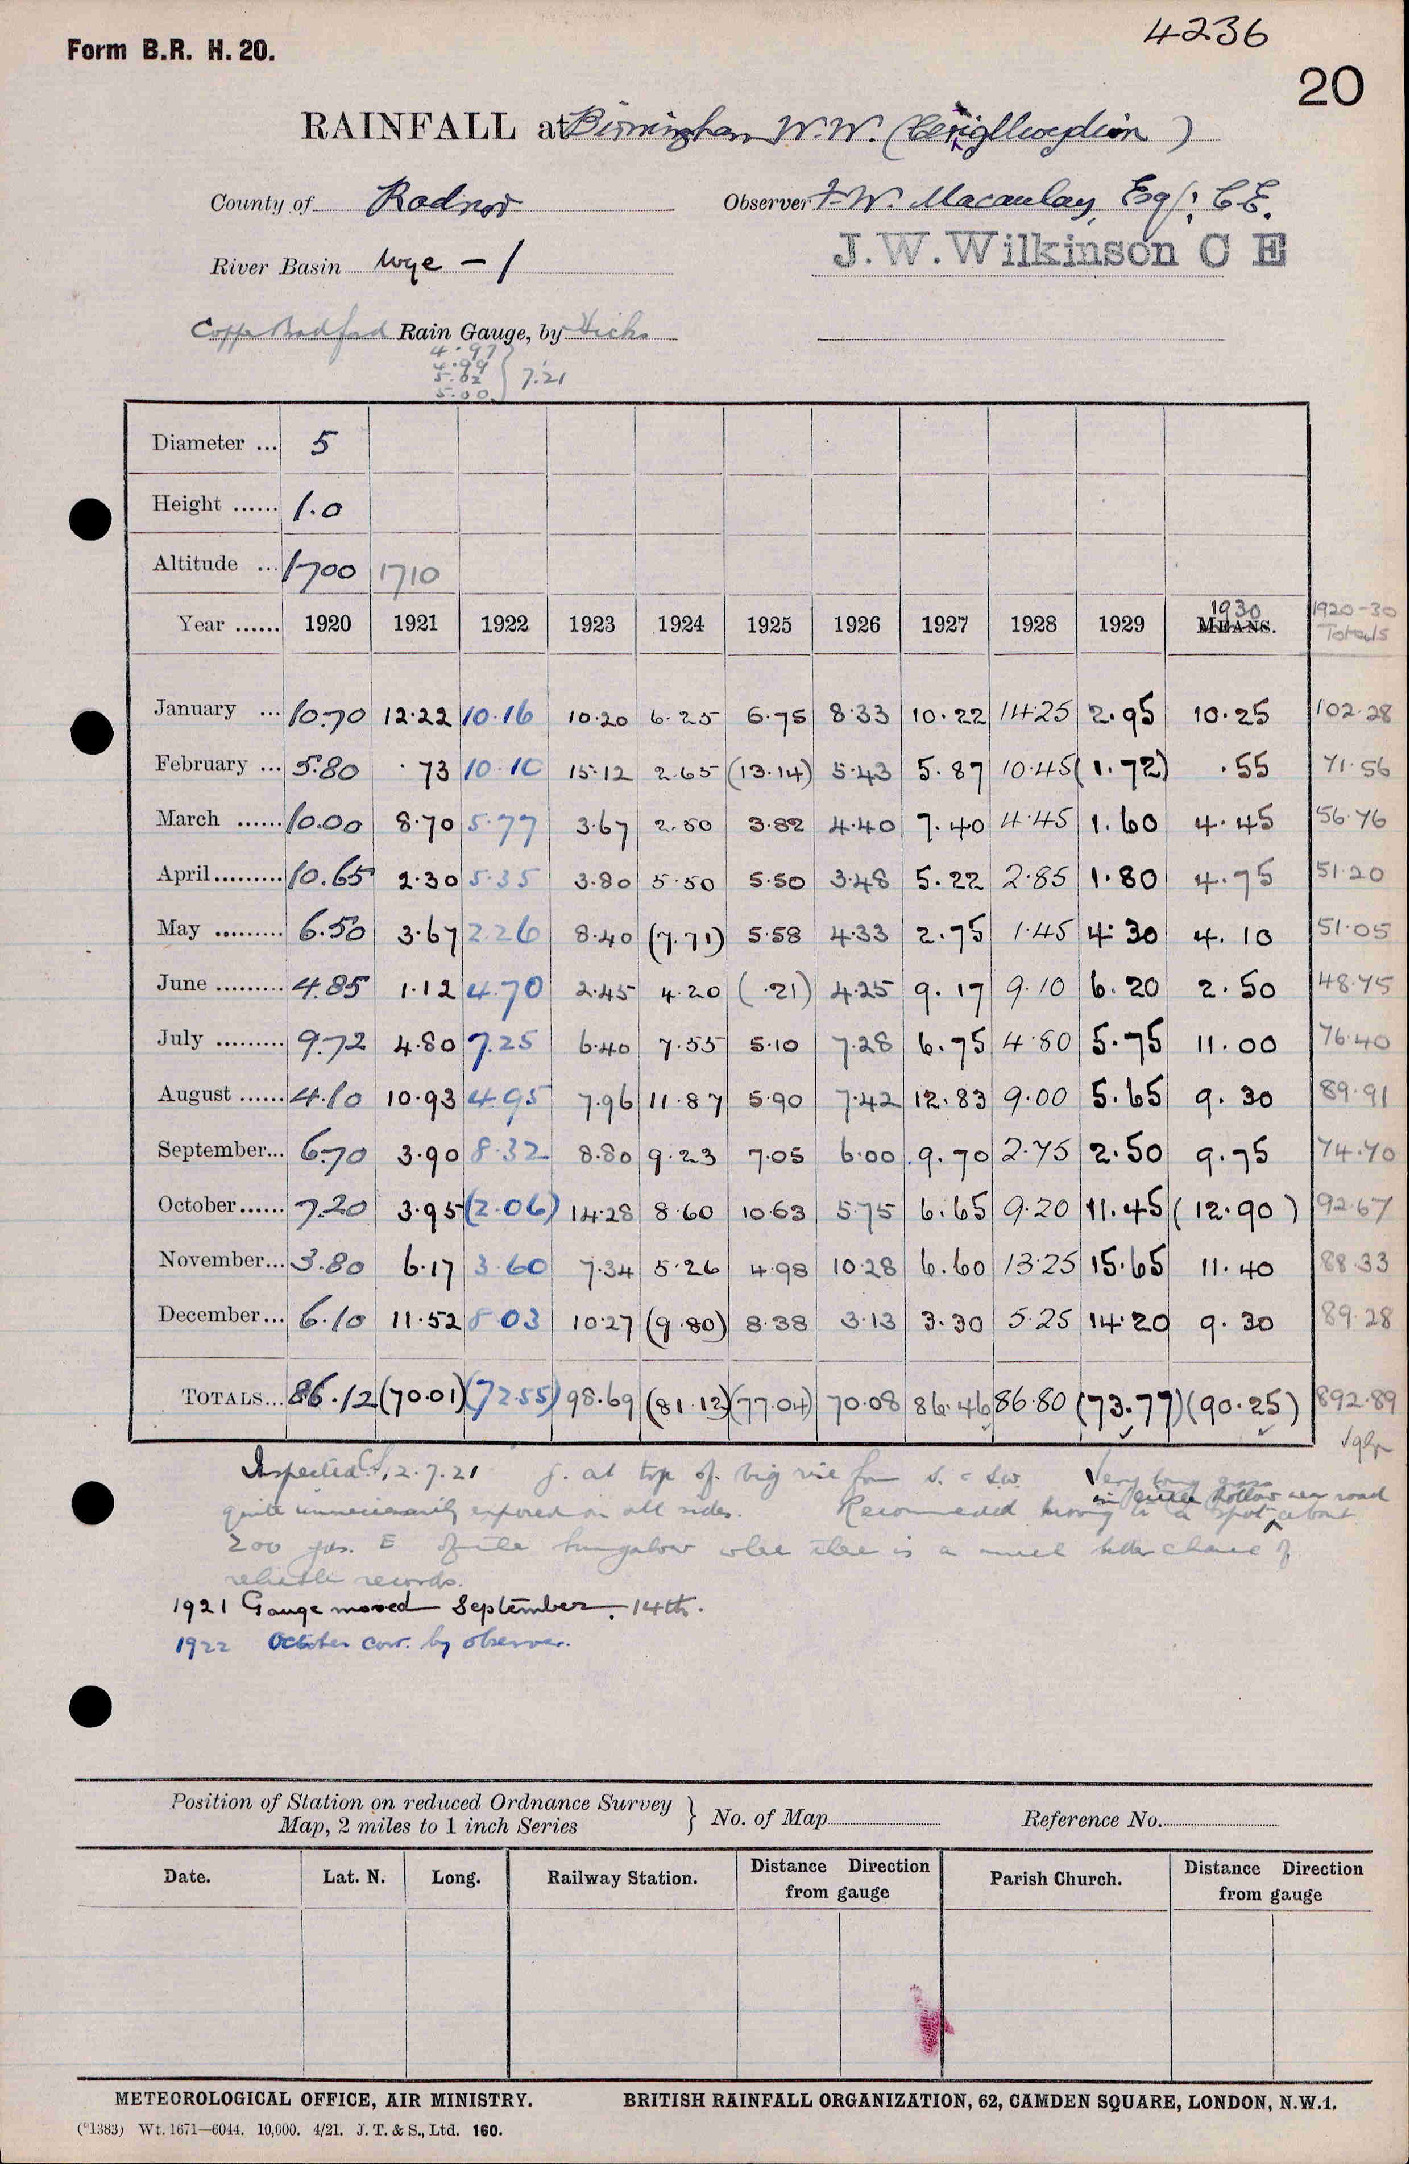 4236
Form B.R. H. 20.
20
RAINFALL at Birmingham W.W. (Cerigllwydion)
County of Radnor Observer F. W. Macaulay, Esq; C.E.
J. W. Wilkinson C E
River Basin Wye - 1
Copper Bradford Rain Gauge, by Hicks
4.97
4.99
5.02 } 7.21
5.00
Diameter ... 5
Height ...... 1.0
Altitude ... 1700 1710
Year ...... 1920 1921 1922 1923 1924 1925 1926 1927 1928 1929 1930 MEANS. 1920-30 Totals
January ... 10.70 12.22 10.16 10.20 6.25 6.75 8.33 10.22 14.25 2.95 10.25 102.28
February ... 5.80 .73 10.10 15.12 2.65 (13.14) 5.43 5.87 10.45 (1.72) .55 71.56
March ...... 10.00 8.70 5.77 3.67 2.50 3.82 4.40 7.40 4.45 1.60 4.45 56.76
April......... 10.65 2.30 5.35 3.80 5.50 5.50 3.48 5.22 2.85 1.80 4.75 51.20
May ......... 6.50 3.67 2.26 8.40 (7.71) 5.58 4.33 2.75 1.45 4.30 4.10 51.05
June ......... 4.85 1.12 4.70 2.45 4.20 (.21) 4.25 9.17 9.10 6.20 2.50 48.75
July ......... 9.72 4.80 7.25 6.40 7.55 5.10 7.28 6.75 4.80 5.75 11.00 76.40
August ...... 4.10 10.93 4.95 7.96 11.87 5.90 7.42 12.83 9.00 5.65 9.30 89.91
September... 6.70 3.90 8.32 8.80 9.23 7.05 6.00 9.70 2.75 2.50 9.75 74.70
October...... 7.20 3.95 (2.06) 14.28 8.60 10.63 5.75 6.65 9.20 11.45 (12.90) 92.67
November... 3.80 6.17 3.60 7.34 5.26 4.98 10.28 6.60 13.25 15.65 11.40 88.33
December... 6.10 11.52 8.03 10.27 (9.80) 8.38 3.13 3.30 5.25 14.20 9.30 89.28
TOTALS... 86.12 (70.01) (72.55) 98.69 (81.12) (77.04) 70.08 86.46 86.80 (73.77) (90.25) 892.89
Inspected 12.7.21 g. at top of big rise from S. & SW. Very long grass
quite unnecessarily exposed on all sides. Recommended moving to a spot in little hollow near road about
200 yds. E of the bungalow where there is a much better chance of
reliable records.
1921 Gauge moved September. 14th.
1922 October corr. by observer.
Position of Station on reduced Ordnance Survey
Map, 2 miles to 1 inch Series } No. of Map Reference No.
Date. Lat. N. Long. Railway Station. Distance Direction from gauge Parish Church. Distance Direction from gauge
METEOROLOGICAL OFFICE, AIR MINISTRY. BRITISH RAINFALL ORGANIZATION, 62, CAMDEN SQUARE, LONDON, N.W.1.
(*1383) Wt. 1671—6044. 10,000. 4/21. J. T. & S., Ltd. 160.